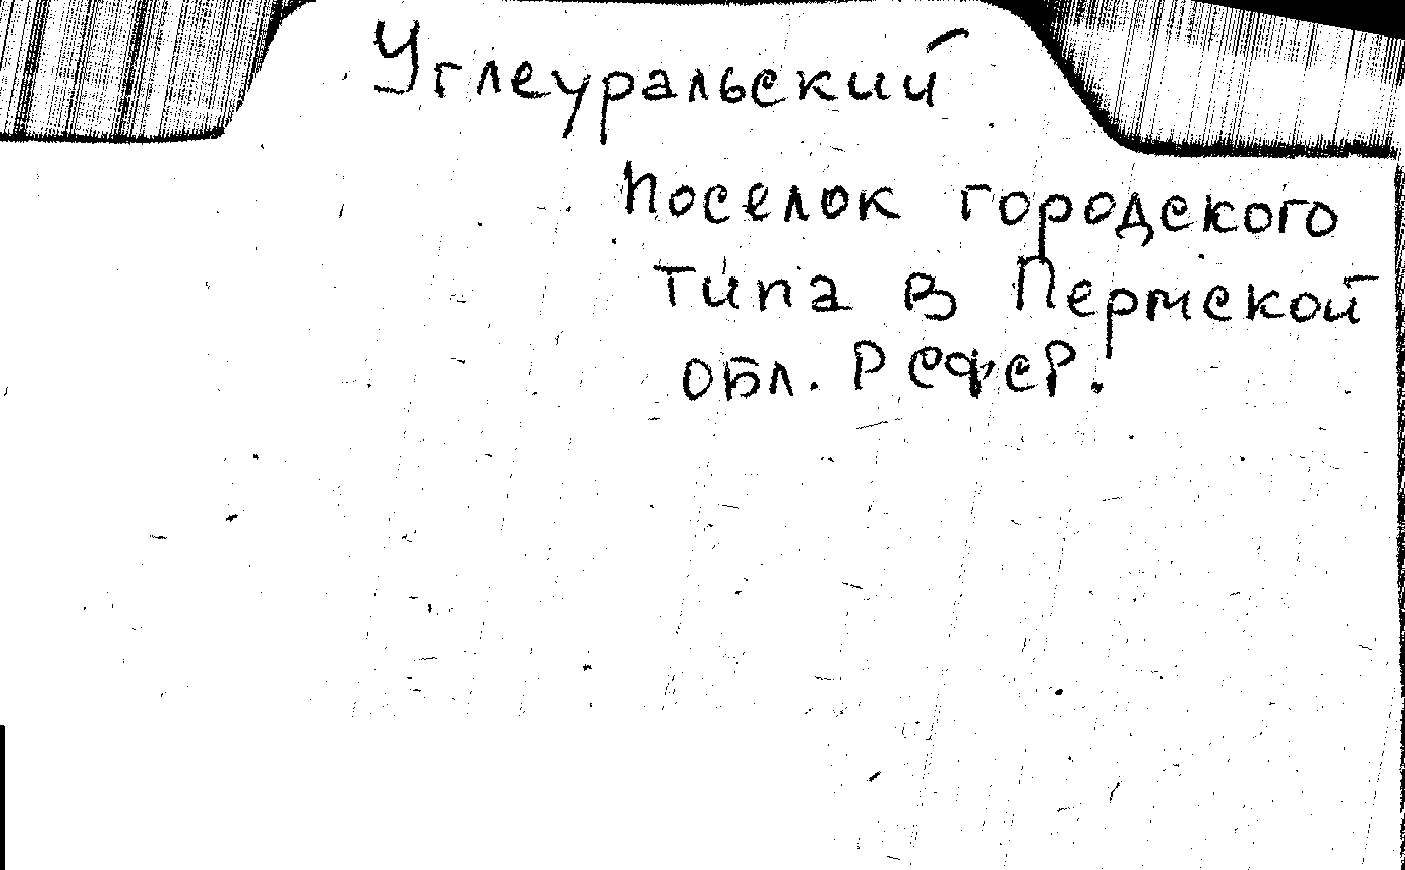 Углеуральский
поселок городского
типа в Пермской
обл. РСФСР.